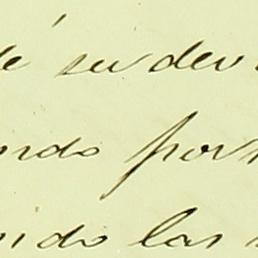 dé su dev
ndo por
ndo las